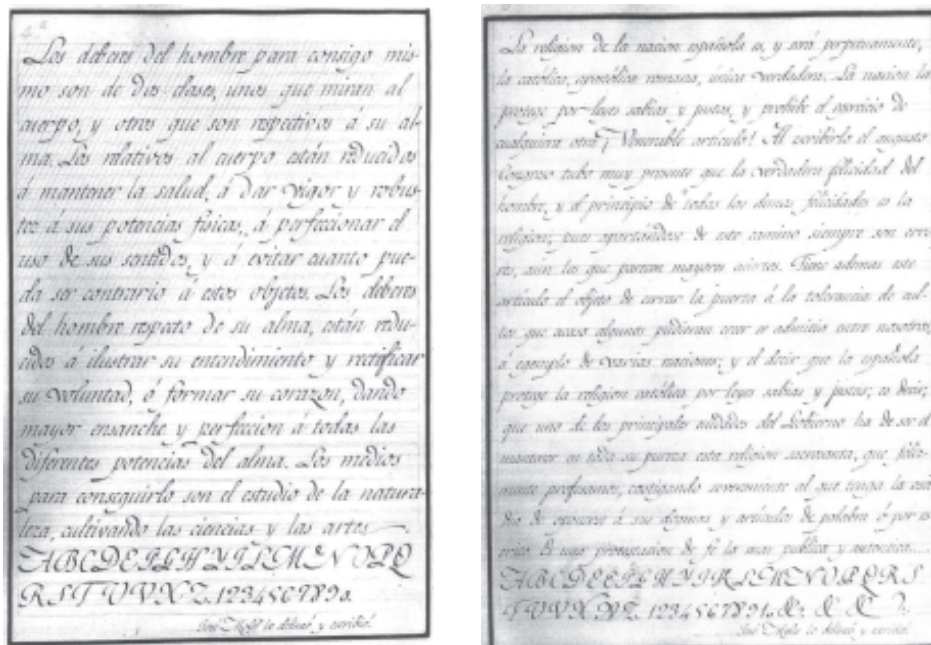 4.ª
Los deberes del hombre para consigo mis-
mo son de dos clases, unos que miran al
cuerpo, y otros que son respectivos á su al-
ma. Los relativos al cuerpo están reducidos
á mantener la salud, á dar vigor y robus-
tez á sus potencias fisicas, á perfeccionar el
uso de sus sentidos, y á evitar cuanto pue-
da ser contrario á estos objetos. Los deberes
del hombre respecto de su alma, están redu-
cidos á ilustrar su entendimiento y rectificar
su voluntad, ó formar su corazon, dando
mayor ensanche y perfeccion á todas las
diferentes potencias del alma. Los medios
para conseguirlo son el estudio de la natura-
leza, cultivando las ciencias y las artes
ABCDEFGHYJLMNOPQ
RSTUVXZ.1234567890.
lo delineó y escribió.
La religion de la nacion española es, y será perpetuamente,
la católica, apostólica romana, única verdadera. La nacion la
protege por leyes sabias y justas, y prohibe el exercicio de
cualquiera otra ¡Venerable artículo! Al escribirlo el augusto
Congreso tubo muy presente que la verdadera felicidad del
hombre, y el principio de todas las demas felicidades es la
religion; pues apartándose de este camino siempre son erro-
res, aun los que parecen mayores aciertos. Tiene ademas este
artículo el objeto de cerrar la puerta á la tolerancia de cul-
tos que acaso algunos pudieran creer se admitia entre nosotros,
á egemplo de varias naciones; y el decir que la española
protege la religion católica por leyes sabias y justas; es decir;
que uno de los principales cuidados del Gobierno ha de ser el
mantener en toda su pureza esta religion sacrosanta, que feliz-
mente profesamos, castigando severamente al que tenga la osa-
dia de oponerse á sus dogmas y artículos de palabra ó por es-
crito. Es una protestacion de fé la mas publica y autentica....
ABCDEFGHYJKLMNOPQRS
TUVXYZ.1234567890.&. & &
lo delineó y escribió.